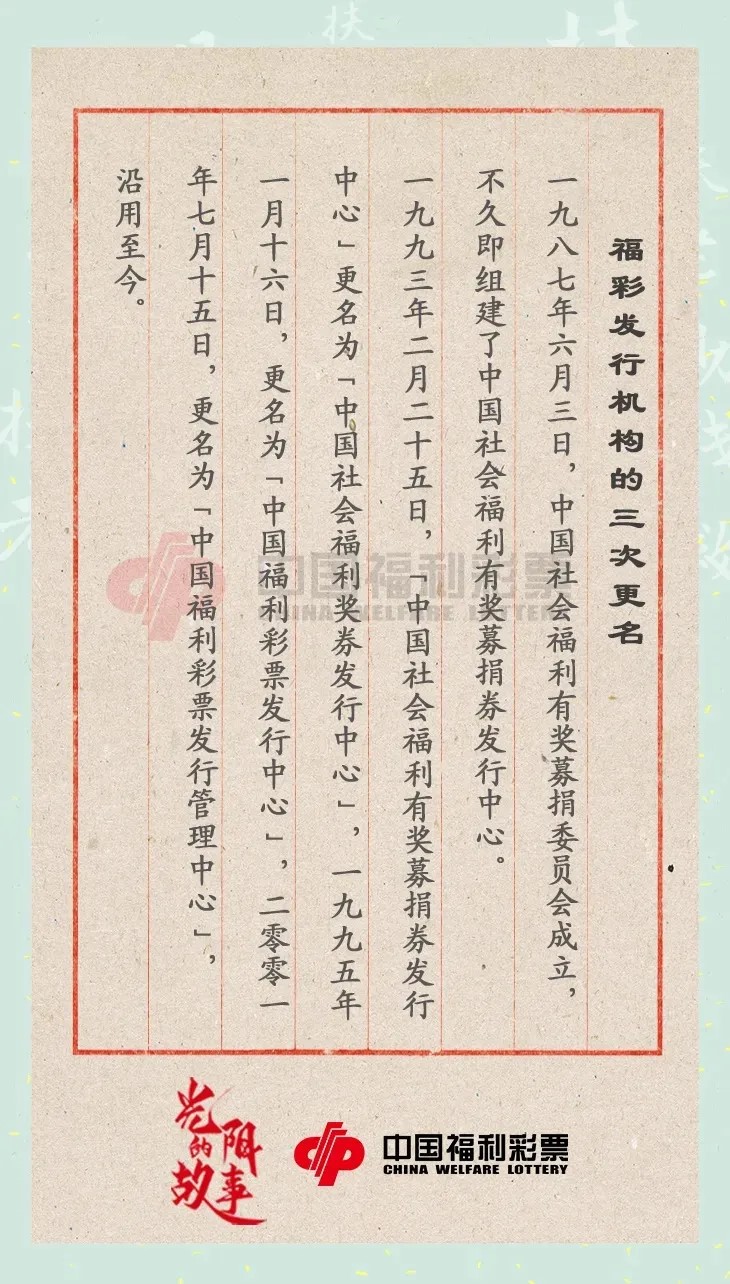 福彩发行机构的三次更名
一九八七年六月三日，中国社会福利有奖募捐委员会成立，
不久即组建了中国社会福利有奖募捐券发行中心。
一九九三年二月二十五日，「中国社会福利有奖募捐券发行
中心」更名为「中国社会福利奖券发行中心」，一九九五年
一月十六日，更名为「中国福利彩票发行中心」，二零零一
年七月十五日，更名为「中国福利彩票发行管理中心」，
沿用至今。
中国福利彩票
CHINA WELFARE LOTTERY
光阴的故事
中国福利彩票
CHINA WELFARE LOTTERY
扶